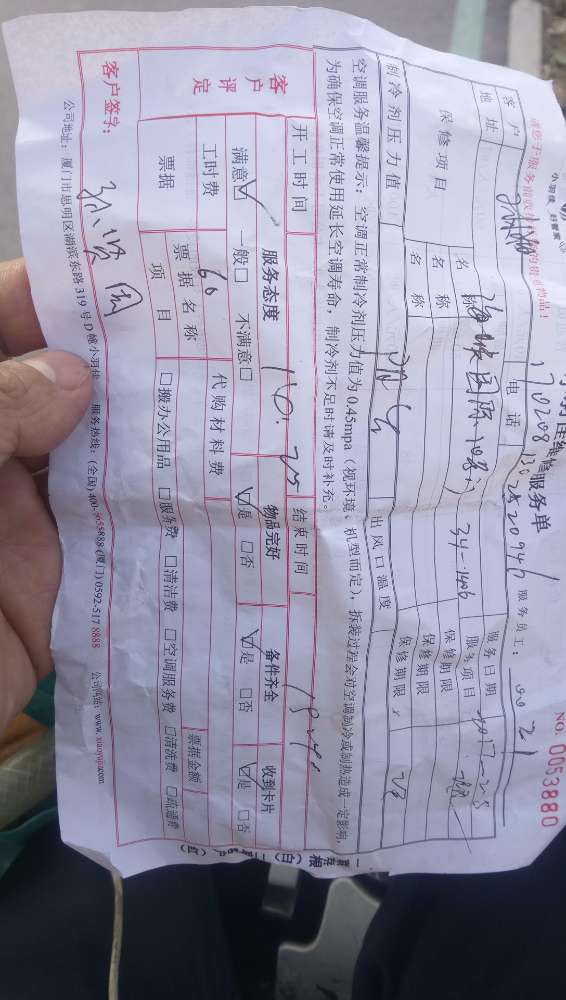 小羽佳 好管家
维修服务单
NO. 0053880
服务员工：0021
客户
电话
13025209471
服务日期
地址
海峡国际
34-1406
服务项目
保修项目
名称
保修期限
名称
保修期限
名称
保修期限
制冷剂压力值
出风口温度
空调服务温馨提示：空调正常制冷剂压力值为0.45mpa（视环境、机型而定），拆装过程会对空调制冷或制热造成一定影响，
为确保空调正常使用延长空调寿命，制冷剂不足时请及时补充。
开工时间
结束时间
客户评定
服务态度
物品完好
备件齐全
收到卡片
满意□ 一般□ 不满意□
□是 □否
□是 □否
□是 □否
工时费
60
代购材料费
票据
票据名称
票据金额
项目
□搬办公用品 □服务费 □清洁费 □空调服务费 □清洗费 □疏通费
客户签字：
公司地址：厦门市思明区湖滨东路319号D幢小羽佳
服务热线：(全国)400-5055888 (厦门) 0592-517 8888
公司网站：www.xiaoyujia.com